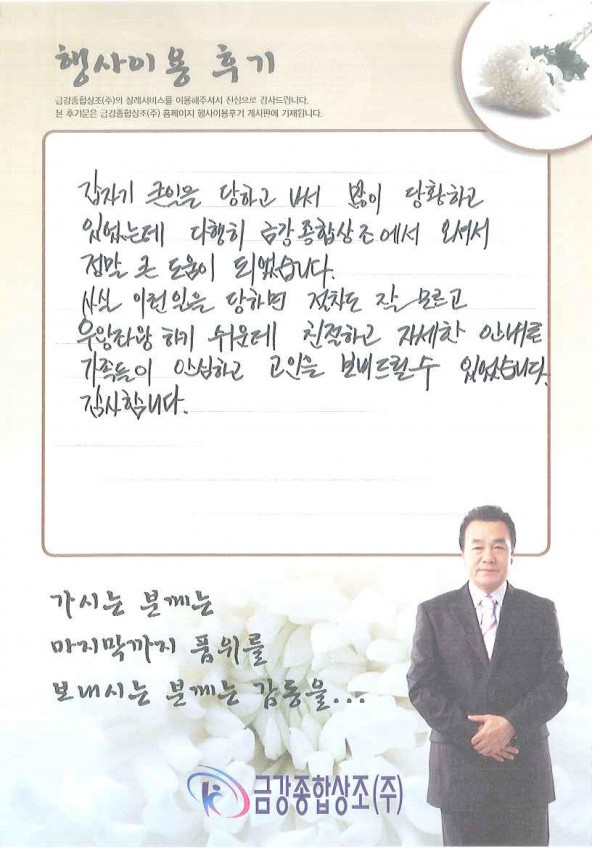 행사이용 후기
금강종합상조(주)의 장례서비스를 이용해주셔서 진심으로 감사드립니다.
본 후기문은 금강종합상조(주) 홈페이지 행사이용후기 게시판에 기재됩니다.
갑자기 큰일을 당하고 나서 많이 당황하고
있었는데 다행히 금강종합상조에서 오셔서
정말 큰 도움이 되었습니다.
사실 이런일을 당하면 절차도 잘 모르고
우왕좌왕 하기 쉬운데 친절하고 자세한 안내로
가족들이 안심하고 고인을 보내드릴수 있었습니다.
감사합니다.
가시는 분께는
마지막까지 품위를
보내시는 분께는 감동을...
금강종합상조(주)